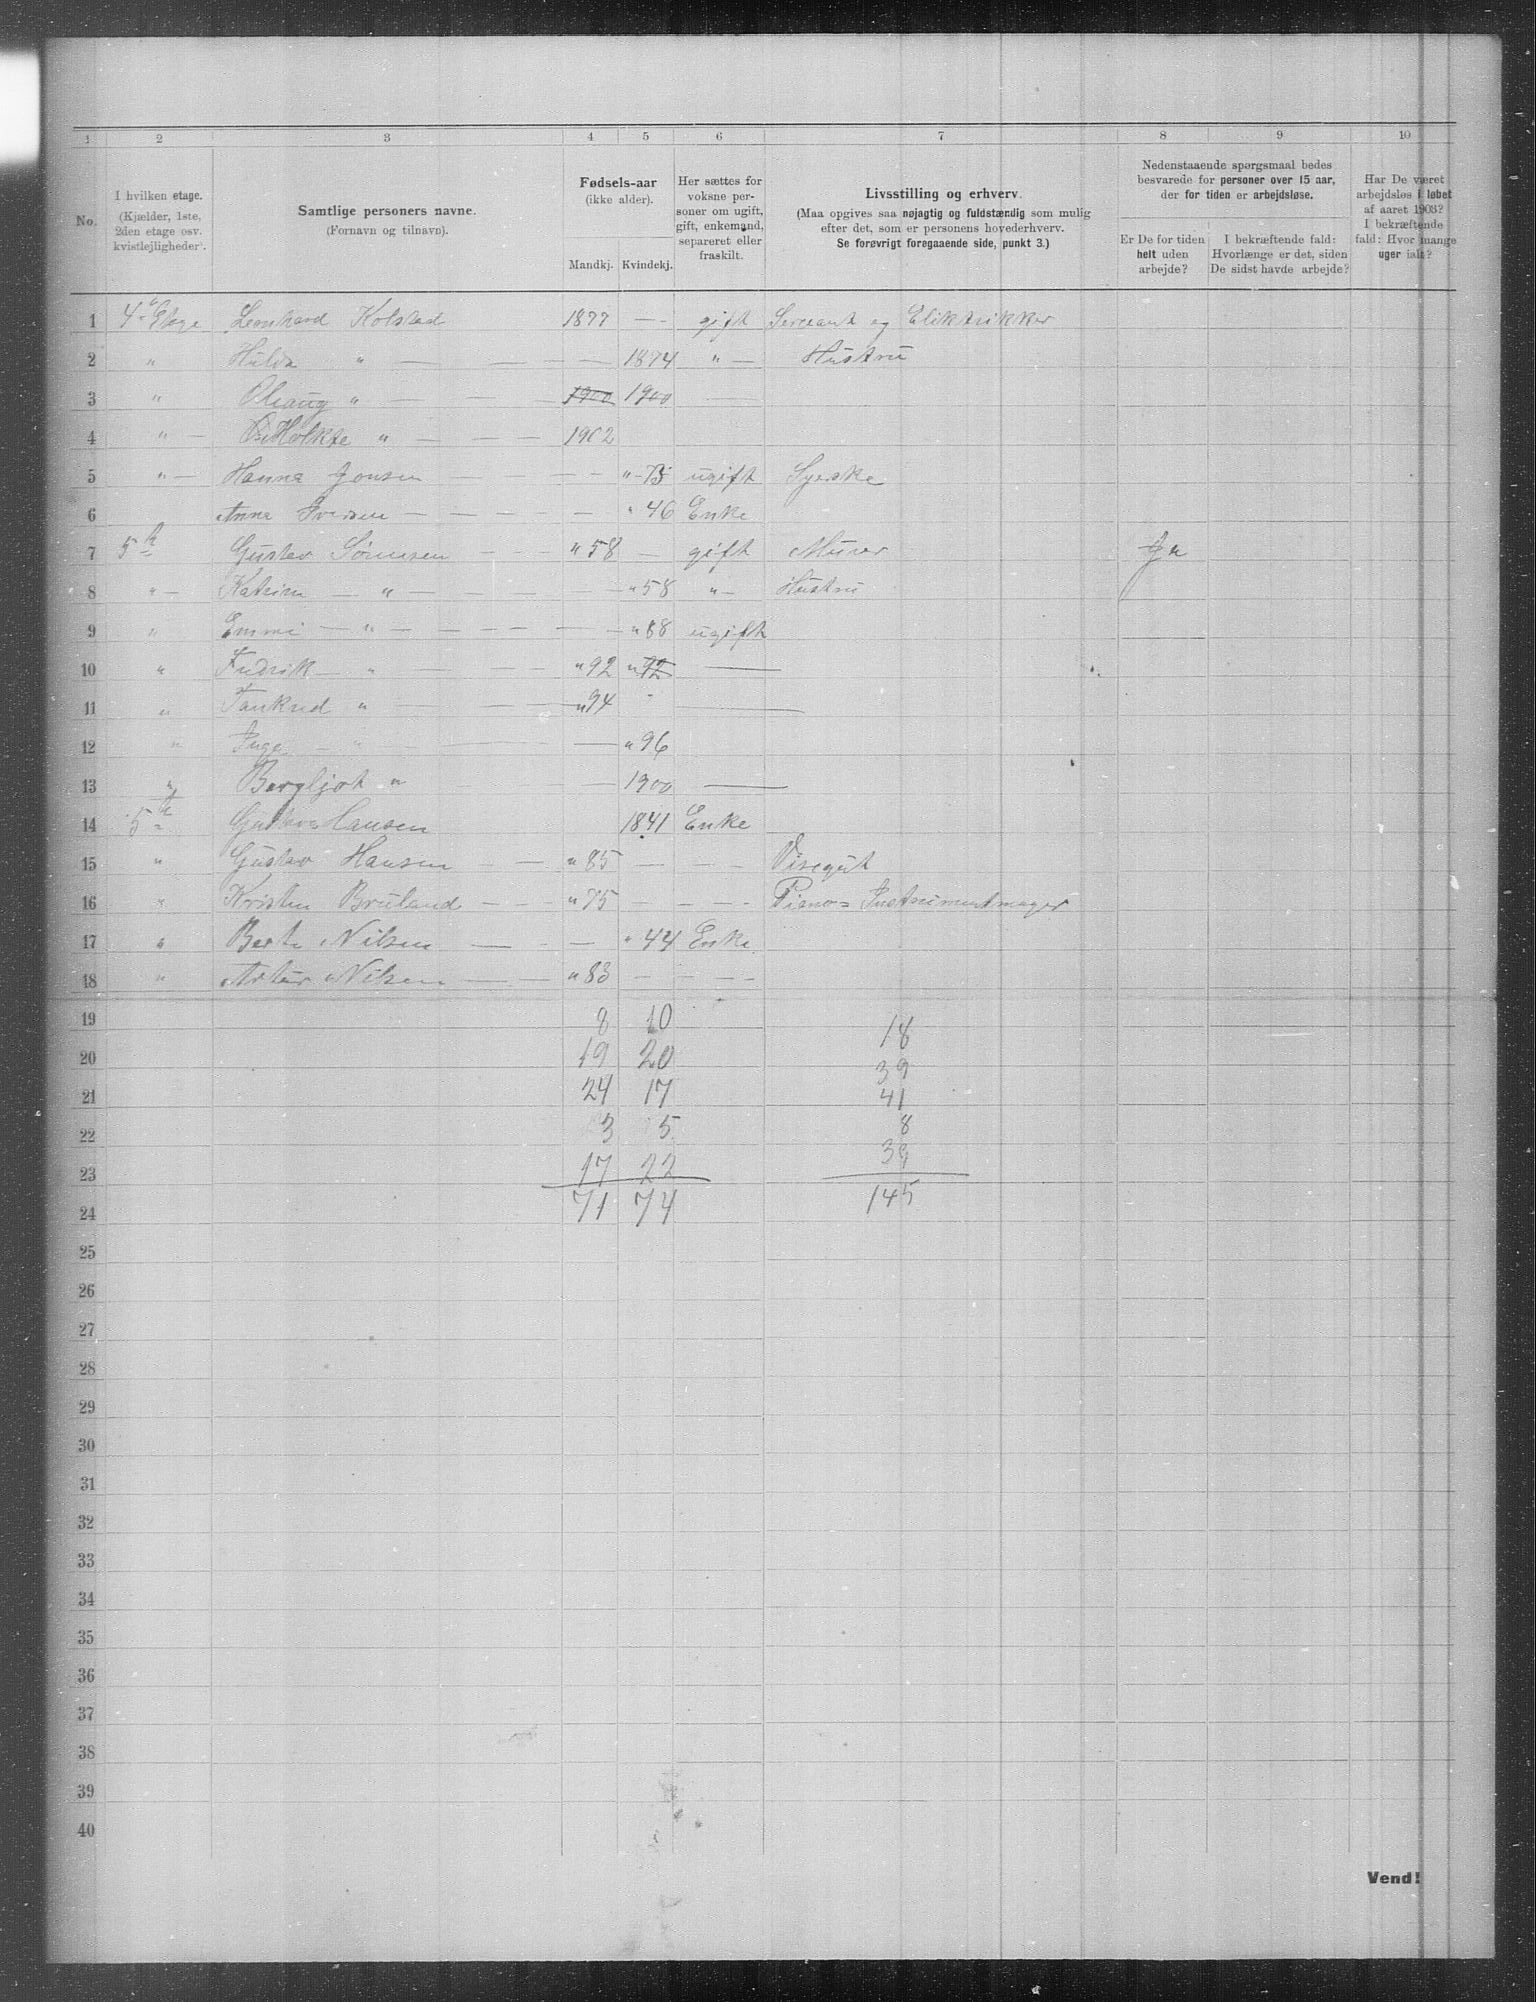 1 2 3 4 5 6 7 8 9 10
No.
I hvilken etage.
(Kjælder, 1ste,
2den etage osv.
kvistlejligheder).
Samtlige personers navne.
(Fornavn og tilnavn).
Fødsels-aar
(ikke alder).
Mandkj. Kvindekj.
Her sættes for
voksne per-
soner om ugift,
gift, enkemand,
separeret eller
fraskilt.
Livsstilling og erhverv.
(Maa opgives saa nøjagtig og fuldstændig som mulig
efter det, som er personens hovederhverv.
Se forøvrigt foregaaende side, punkt 3.)
Nedenstaaende spørgsmaal bedes
besvarede for personer over 15 aar,
der for tiden er arbejdsløse.
Er De for tiden
helt uden
arbejde?
I bekræftende fald:
Hvorlænge er det, siden
De sidst havde arbejde?
Har De været
arbejdsløs i løbet
af aaret 1903?
I bekræftende
fald: Hvor mange
uger ialt?
1 4. Etage Leonhard Kolstad 1877 — gift Serceant og Eliktrikker
2 " Hulda " — — — 1874 " — Hustru
3 " " — — 1900 1900
4 " — " — — 1902
5 " — Hanna Jonsen — — — " ugift Syerske
6 Anna Iversen — — — — " 46 Enke
7 5 Gustav — — " 58 — gift Murer Ja
8 " — Katrine — " — — — " 58 " — Hustru
9 " Emmi — " — — — — " 88 ugift
10 " Fredrik — " — — " 92 " 92 —
11 " Tankred " — — " 94 —
12 " Inga — " — — " 96
13 " Bergljot " — — 1900 —
14 5 Hansen 1841 Enke
15 " Gustav Hansen — — " 85 — — — Visegut
16 " Kristen Bruland — — " 75 — — — Piano= Instrumentmager
17 " Berte Nilsen — — " 44 Enke
18 " Artur Nilsen — — " 83 — — —
19 8 10 18
20 19 20 39
21 24 17 41
22 3 5 8
23 17 22 39
24 71 74 145
25
26
27
28
29
30
31
32
33
34
35
36
37
38
39
40
Vend!